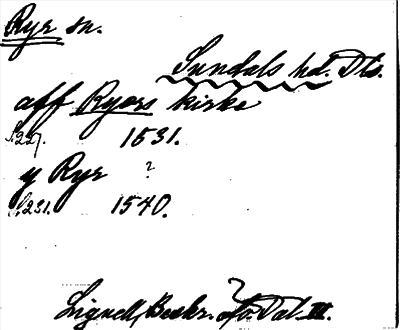 Ryr sn.
Sundals hd. Dls.
aff Ryors kirke
S.227. 1531.
y Ryr ?
S.231. 1540.
Lignell, Beskr. ofv. Dal III.